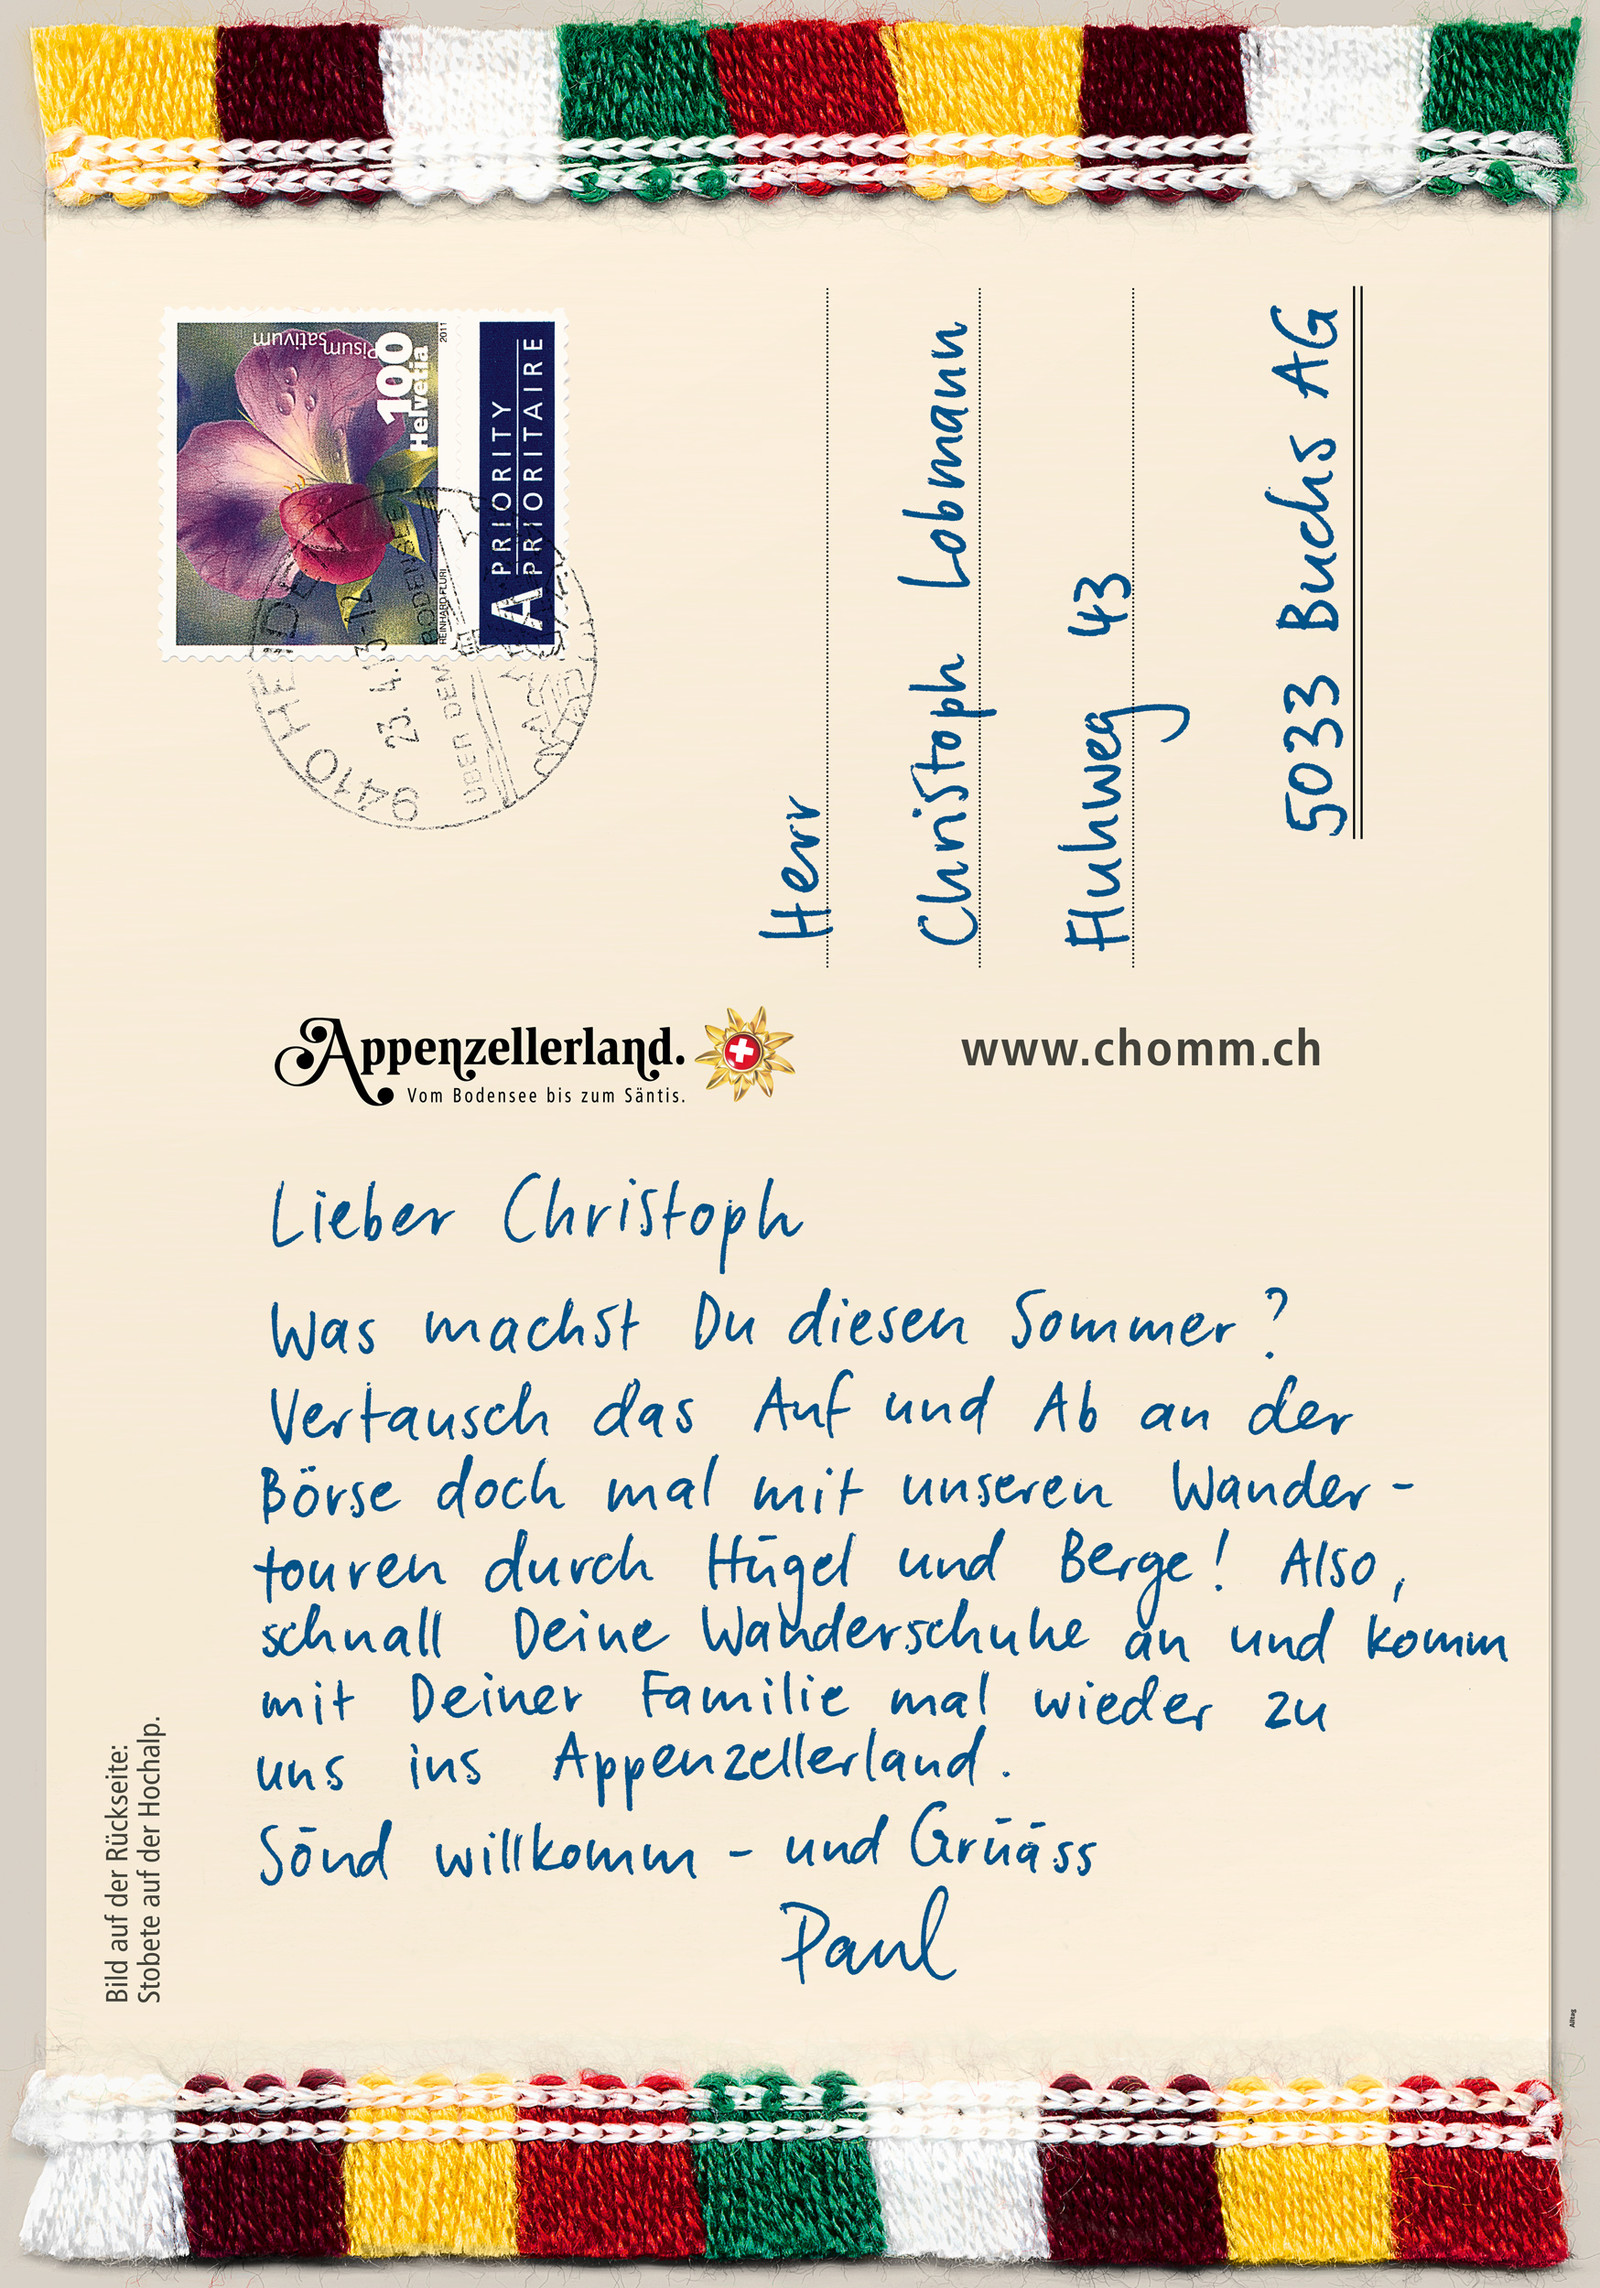 Pisum
sativum
100
Helvetia
2011
REINHARD FLURI
A PRIORITY
PRIORITAIRE
9410 HEIDEN
23.4.13-12
ÜBER DEM BODENSEE
Herr
Christoph Lobmann
Fluhweg 43
5033 Buchs AG
Appenzellerland.
Vom Bodensee bis zum Säntis.
www.chomm.ch
Lieber Christoph
Was machst Du diesen Sommer?
Vertausch das Auf und Ab an der
Börse doch mal mit unseren Wander-
touren durch Hügel und Berge! Also,
schnall Deine Wanderschuhe an und komm
mit Deiner Familie mal wieder zu
uns ins Appenzellerland.
Sönd willkomm - und Grüäss
Paul
Bild auf der Rückseite:
Stobete auf der Hochalp.
Alltag